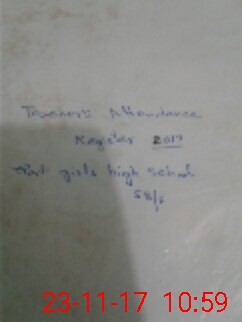 Teacher's Attendance
Register 2017
girls high school
58/5
23-11-17 10:59